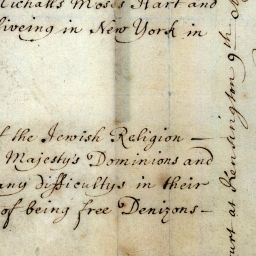 Michalls Moses Hart and
liveing in New York in
of the Jewish Religion —
Majesty's Dominions and
any difficultys in their
of being free Denizons —
Court at Kensington 9th